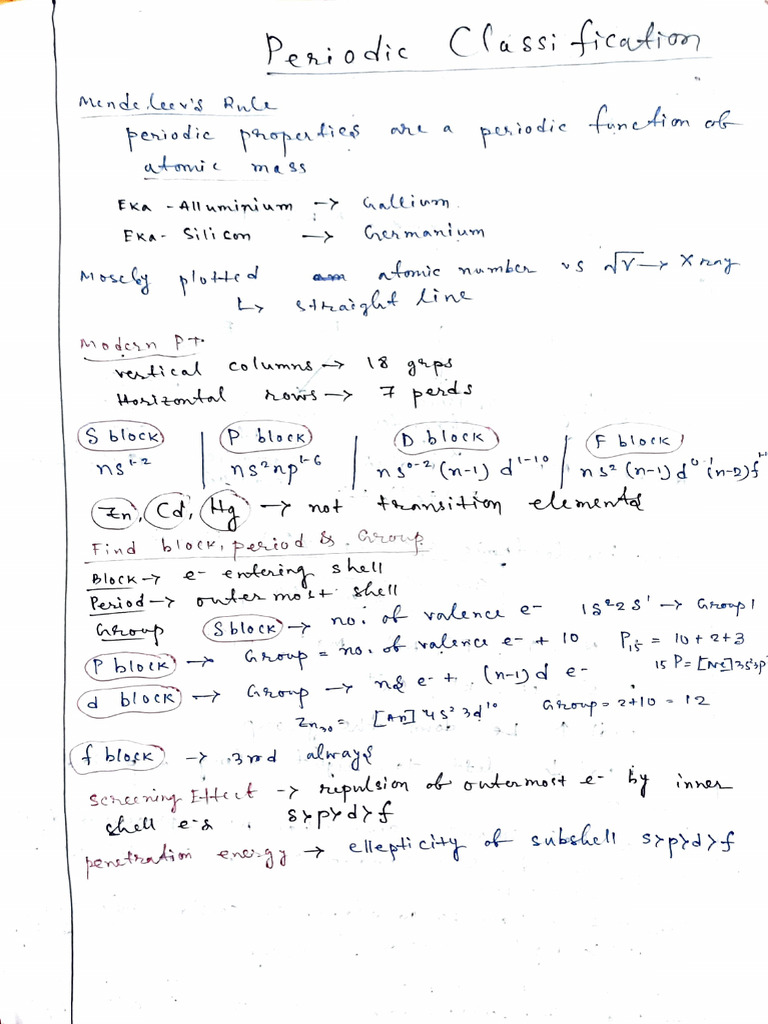 Periodic Classification
Mendeleev's Rule
periodic properties are a periodic function of
atomic mass
Eka - Alluminium → Gallium
Eka - Silicon → Germanium
Moseley plotted atomic number vs √ν → X ray
↳ straight line
Modern PT.
vertical columns → 18 grps
Horizontal rows → 7 perds
S block | P block | D block | F block
ns¹⁻² | ns²np¹⁻⁶ | ns⁰⁻² (n-1) d¹⁻¹⁰ | ns² (n-1)d (n-2)f
Zn, Cd, Hg → not transition elements
Find block, period & Group
Block → e- entering shell
Period → outermost shell
Group S block → no. of valence e- 1s²2s¹ → Group 1
P block → Group = no. of valence e- + 10 P₁₅ = 10 + 2 + 3
15 P = [Ne] 3s²3p³
d block → Group → ns e- + (n-1)d e-
Zn₃₀ = [Ar] 4s² 3d¹⁰ Group = 2+10 = 12
f block → 3rd always
screening Effect → repulsion of outermost e- by inner
shell e-s. s>p>d>f
penetration energy → ellepticity of subshell s>p>d>f